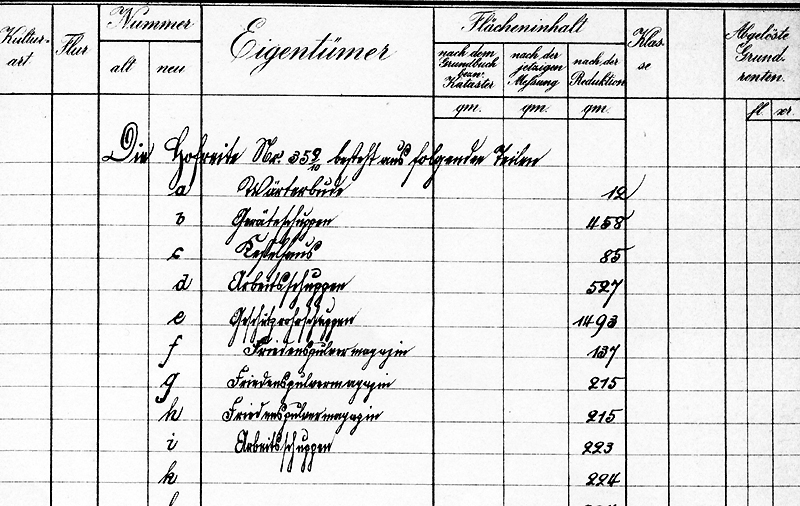 Kultur-art Flur Nummer alt neu Eigentümer Flächeninhalt nach dem Grundbuch bezw. Kataster nach der jetzigen Messung nach der Reduktion Klas se Abgelöste Grund-renten.
qm. qm. qm. fl. xr.
Die Hofreite Nr. 352/10 besteht aus folgenden Teilen
a Wärterbude 12
b Geräteschuppen 458
c Kesselhaus 85
d Arbeitsschuppen 527
e Geschützrohrschuppen 1493
f Friedenspulvermagazin 137
g Friedenspulvermagazin 215
h Friedenspulvermagazin 215
i Arbeitsschuppen 223
k 224